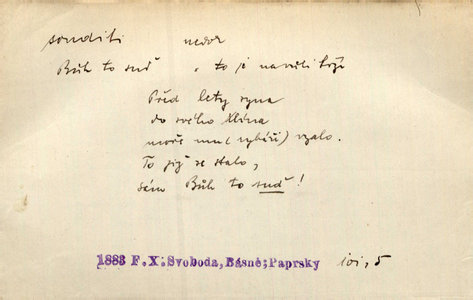 souditi nedok
Bůh to suď , to je na vůli boží
Před lety syna
do svého klína
moře mu (rybáři) vzalo.
To již se stalo,
sám Bůh to suď!
1883 F.X.Svoboda,Básně;Paprsky ibi, 5